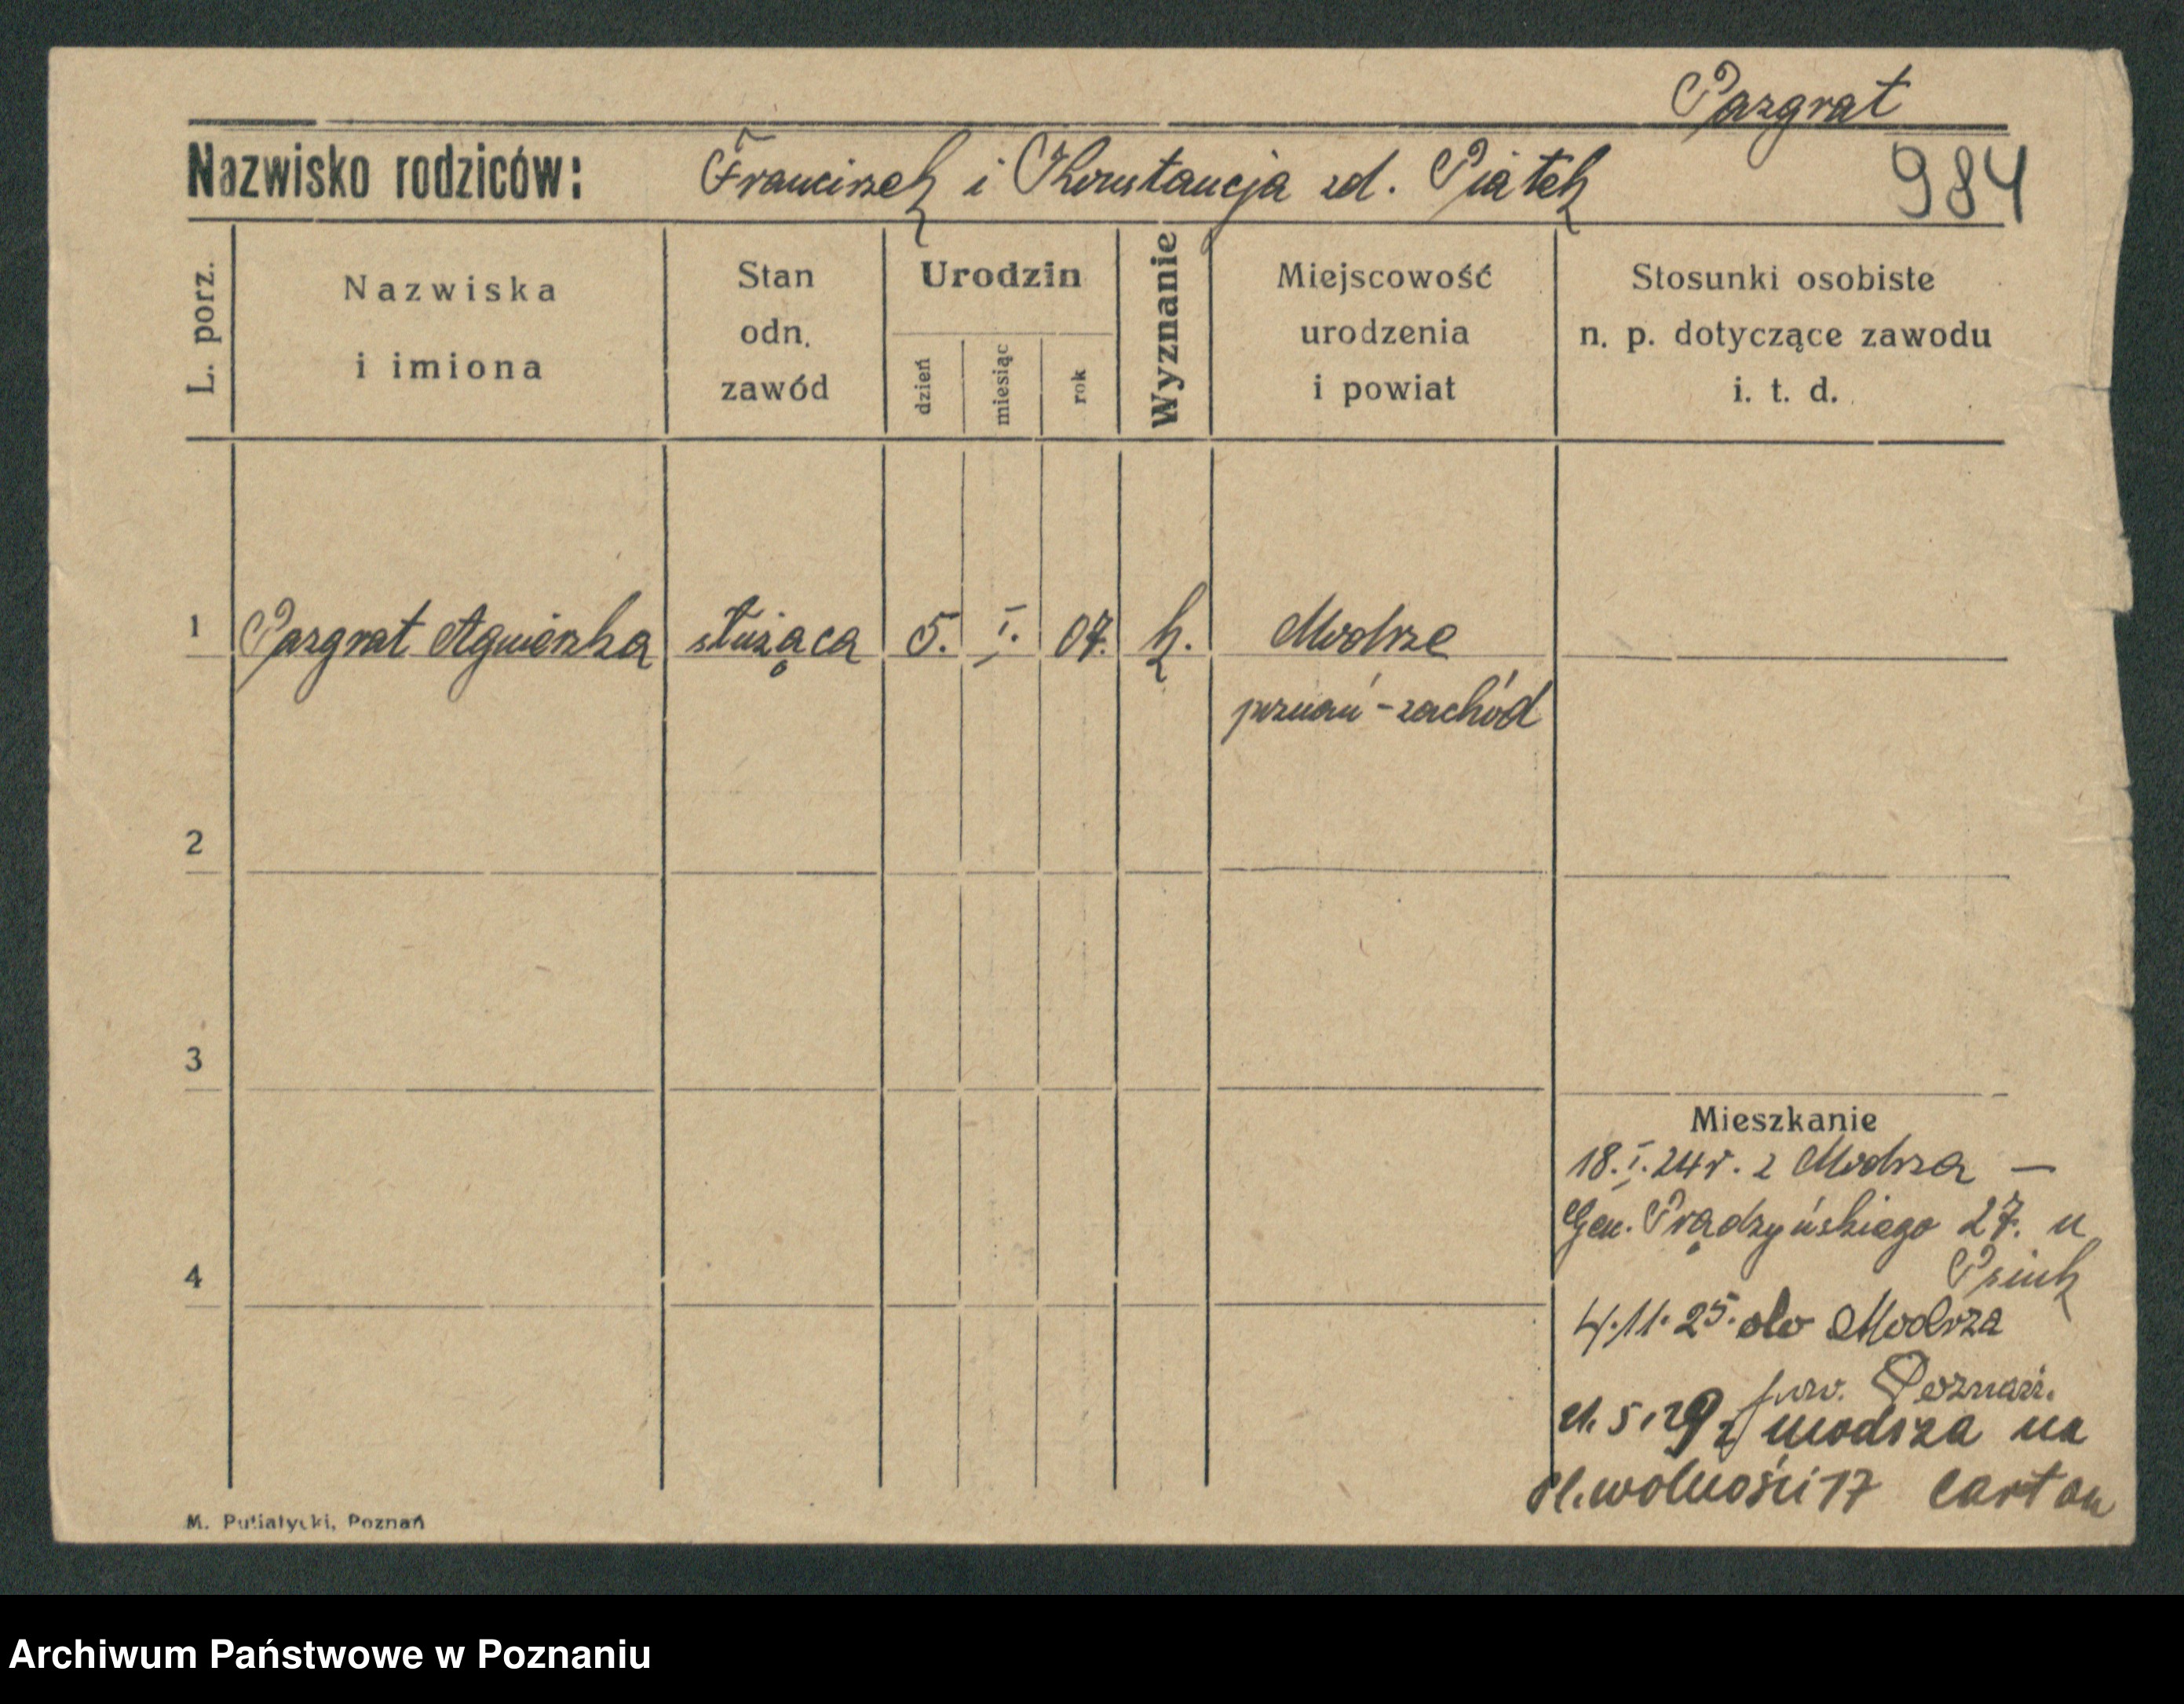 Pazgrat
Nazwisko rodziców: Franciszek i Konstancja zd. Piątek 984
L. porz.
Nazwiska
i imiona
Stan
odn.
zawód
Urodzin
dzień
miesiąc
rok
Wyznanie
Miejscowość
urodzenia
i powiat
Stosunki osobiste
n. p. dotyczące zawodu
i. t. d.
1 Pazgrat Agnieszka służąca 5. I. 07. k. Modrze
poznań - zachód
2
3
4
Mieszkanie
18. I. 24 r. z Modrza —
Gen. Prądzyńskiego 27. u
4. 11. 25. do Modrza
pow. Poznań.
21. 5. 29 z modrza na
Pl. wolności 17
M. Putiatycki, Poznań
Archiwum Państwowe w Poznaniu